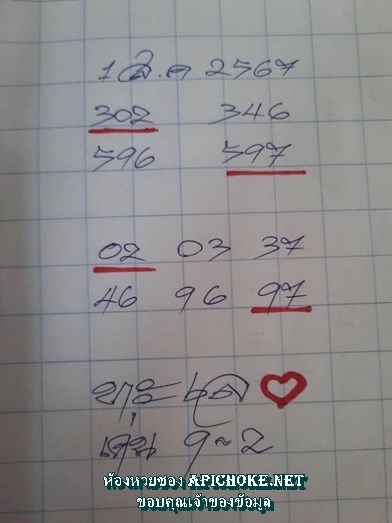 1 ส.ค 2567
302 346
596 597
02 03 37
46 96 97
เน้น 9~2
ห้องหวยซอง APICHOKE.NET
ขอบคุณเจ้าของข้อมูล